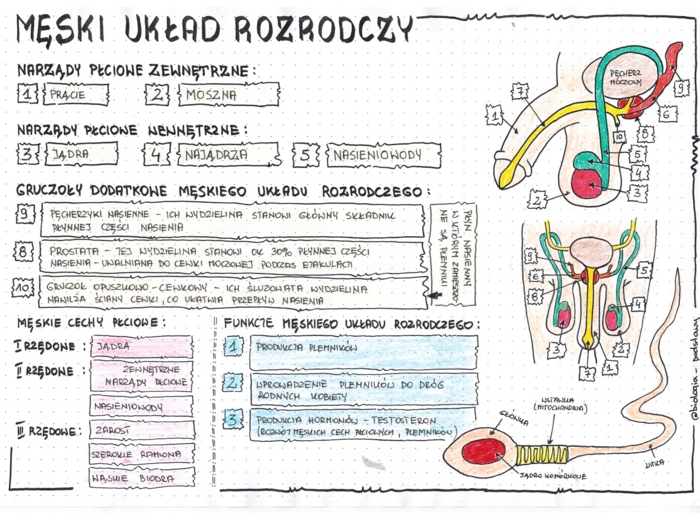 MĘSKI UKŁAD ROZRODCZY
NARZĄDY PŁCIOWE ZEWNĘTRZNE:
1 PRĄCIE 2 MOSZNA
NARZĄDY PŁCIOWE WEWNĘTRZNE:
3 JĄDRA 4 NAJĄDRZA 5 NASIENIOWODY
GRUCZOŁY DODATKOWE MĘSKIEGO UKŁADU ROZRODCZEGO:
9 PĘCHERZYKI NASIENNE - ICH WYDZIELINA STANOWI GŁÓWNY SKŁADNIK
PŁYNNEJ CZĘŚCI NASIENIA
8 PROSTATA - JEJ WYDZIELINA STANOWI OK 30% PŁYNNEJ CZĘŚCI
NASIENIA - UWALNIANA DO CEWKI MOCZOWEJ PODCZAS EJAKULACJI
10 GRUCZOŁ OPUSZKOWO - CEWKOWY - ICH ŚLUZOWATA WYDZIELINA
NAWILŻA ŚCIANY CEWKI, CO UŁATWIA PRZEPŁYW NASIENIA
PŁYN NASIENNY
W KTÓRYM ZAWIESZONE
SĄ PLEMNIKI
MĘSKIE CECHY PŁCIOWE:
I RZĘDOWE: JĄDRA
II RZĘDOWE: ZEWNĘTRZNE
NARZĄDY PŁCIOWE
NASIENIOWODY
III RZĘDOWE: ZAROST
SZEROKIE RAMIONA
WĄSKIE BIODRA
FUNKCJE MĘSKIEGO UKŁADU ROZRODCZEGO:
1 PRODUKCJA PLEMNIKÓW
2 WPROWADZENIE PLEMNIKÓW DO DRÓG
RODNYCH KOBIETY
3 PRODUKCJA HORMONÓW - TESTOSTERON
(ROZWÓJ MĘSKICH CECH PŁCIOWYCH, PLEMNIKÓW)
PĘCHERZ
MOCZOWY
1
7
9
6
8
10
5
4
3
2
9
6
8
5
4
3
1
2
7
GŁÓWKA
WSTAWKA
(MITOCHONDRIA)
JĄDRO KOMÓRKOWE
WITKA
@biologia - podstawy